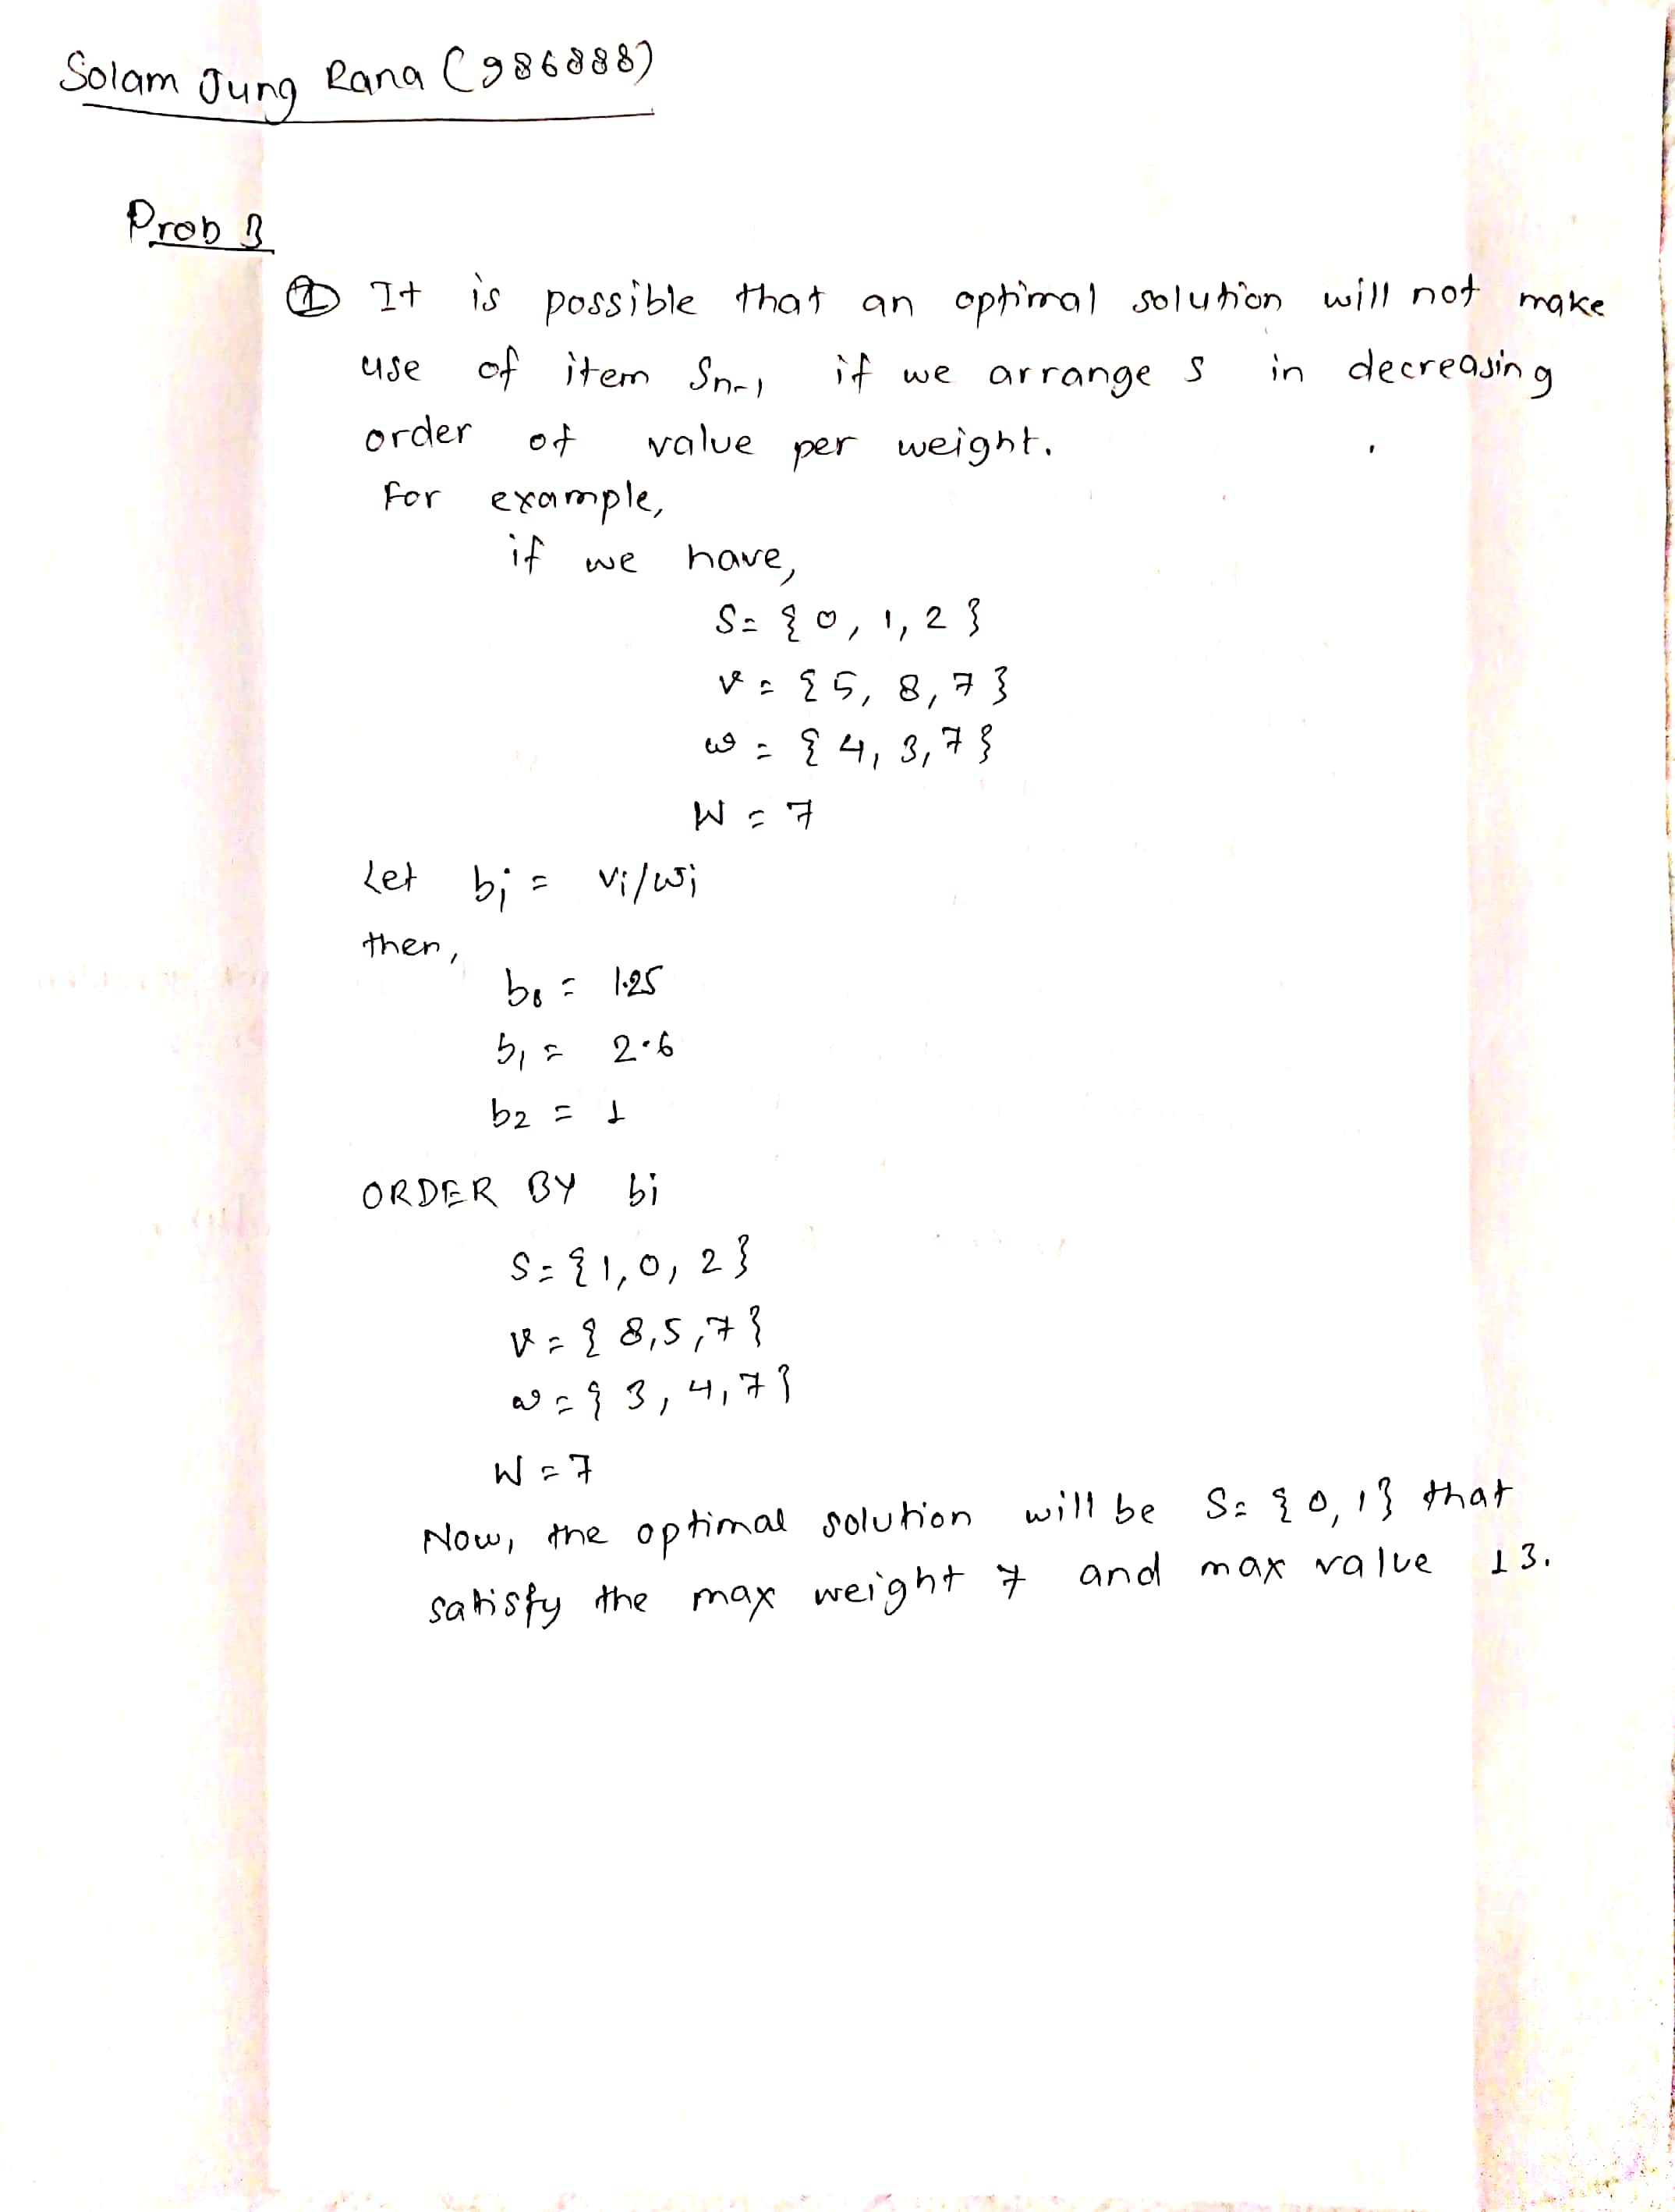 Solam Jung Rana (986888)
Prob 3
① It is possible that an optimal solution will not make
use of item Sn-1 if we arrange s in decreasing
order of value per weight.
For example,
if we have,
S = {0, 1, 2}
v = {5, 8, 7}
w = {4, 3, 7}
W = 7
Let bi = vi/wi
then,
b0 = 1.25
b1 = 2.6
b2 = 1
ORDER BY bi
S = {1, 0, 2}
v = {8, 5, 7}
w = {3, 4, 7}
W = 7
Now, the optimal solution will be S = {0, 1} that
satisfy the max weight 7 and max value 13.